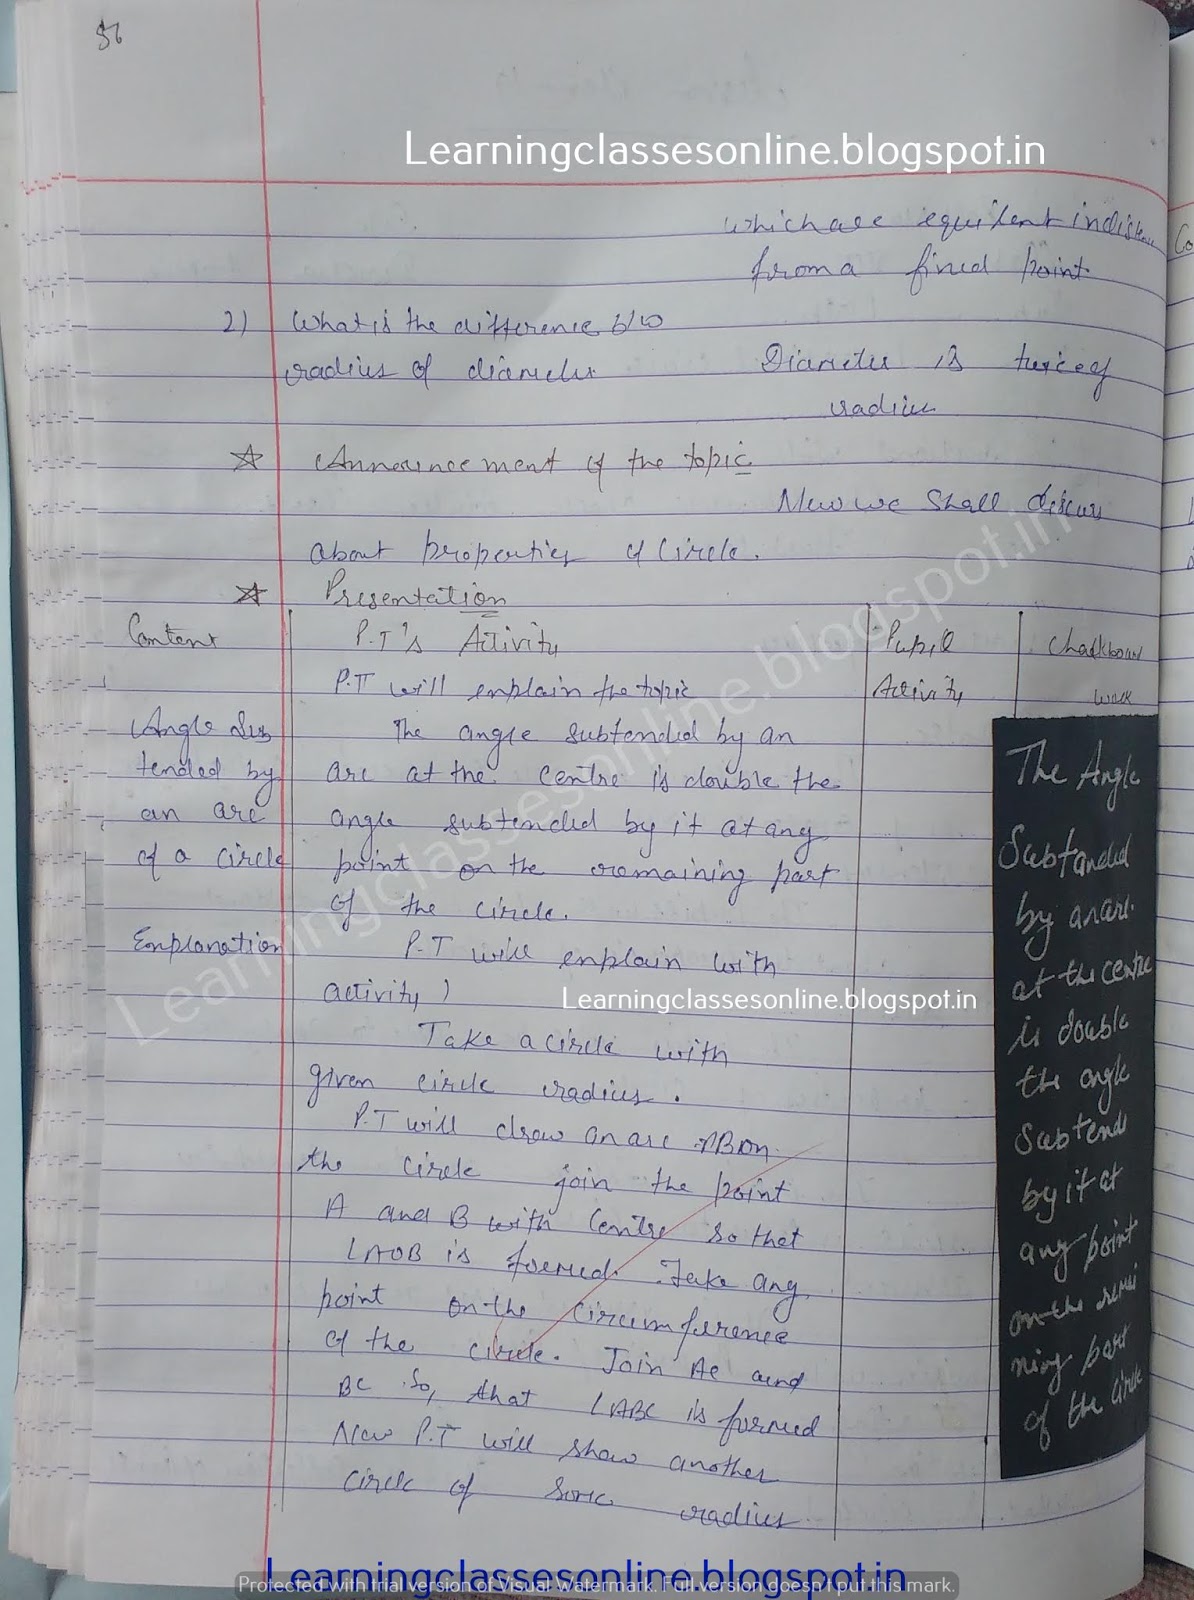 56
Learningclassesonline.blogspot.in
which are equilent in distenc
from a fined point
2) What is the difference b/w
radius of diameter
Diameter is twice of
radius
☆ Announcement of the topic
Now we shall discus
about properties of circle.
☆ Presentation
Content P.T's Activity Pupil Chalkboard
P.T will enplain the topic Activity work
Angle Sub The angle subtended by an
tended by arc at the centre is double the
an arc angle subtended by it at any
of a circle point on the remaining part
of the circle.
Enplanation P.T will enplain with
activity)
Take a circle with
given circle radius.
P.T will draw an arc AB on
the circle join the point
A and B with centre so that
∠AOB is formed. Take any
point on the circumference
of the circle. Join AC and
BC So, that ∠ABC is formed
Now P.T will show another
circle of same radius
The Angle
Subtanded
by an arc.
at the centre
is double
the angle
Subtends
by it at
any point
on the remai
ning part
of the circle
Learningclassesonline.blogspot.in
Learningclassesonline.blogspot.in
Learningclassesonline.blogspot.in
Protected with trial version of Visual Watermark. Full version doesn't put this mark.